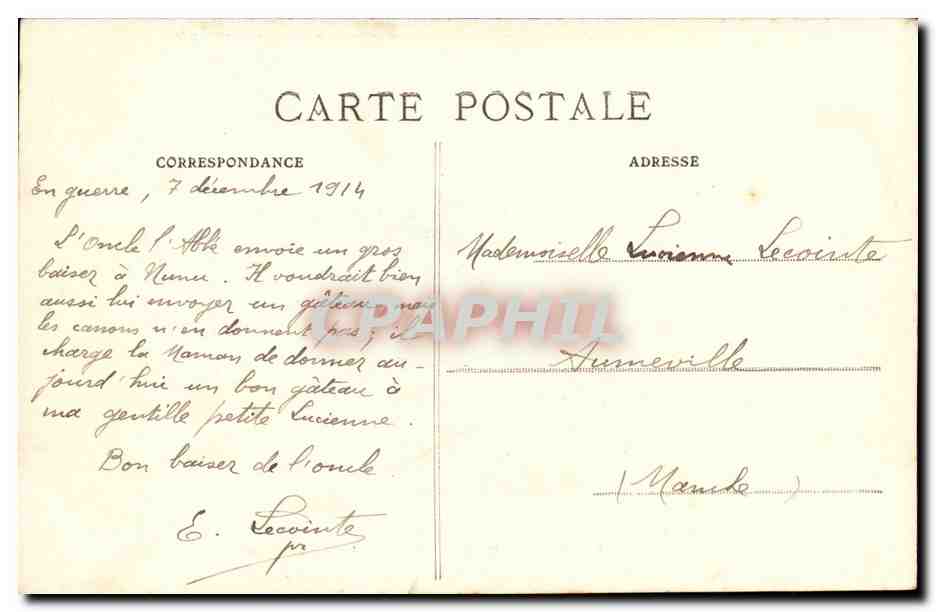 CARTE POSTALE
CORRESPONDANCE
En guerre, 7 décembre 1914
L'Oncle l'Abbé envoie un gros
baiser à Nunu. Il voudrait bien
aussi lui envoyer un gâteau, mais
les canons n'en donnent pas; il
charge la Maman de donner au-
jourd'hui un bon gâteau à
ma gentille petite Lucienne.
Bon baiser de l'oncle
E. Lecointe
pr
ADRESSE
Mademoiselle Lucienne Lecointe
Aumeville
(Manche)
CPAPHIL